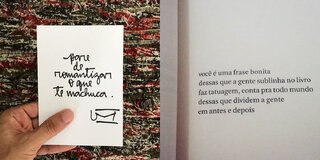 pare
de
romantizar
o que
te machuca.
você é uma frase bonita
dessas que a gente sublinha no livro
faz tatuagem, conta pra todo mundo
dessas que dividem a gente
em antes e depois